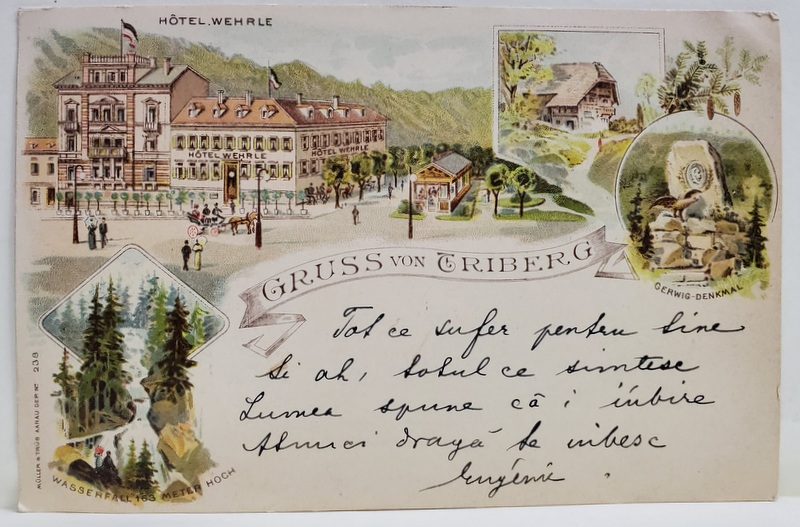 HÔTEL WEHRLE
HÔTEL WEHRLE
HÔTEL WEHRLE
GERWIG-DENKMAL
GRUSS VON TRIBERG
Tot ce sufer pentru tine
Si ah, totul ce simtesc
Lumea spune că i iubire
Atunci dragă te iubesc
Eugénie.
WASSERFALL 163 METER HOCH
MÜLLER & TRÜB AARAU DEP. No 238